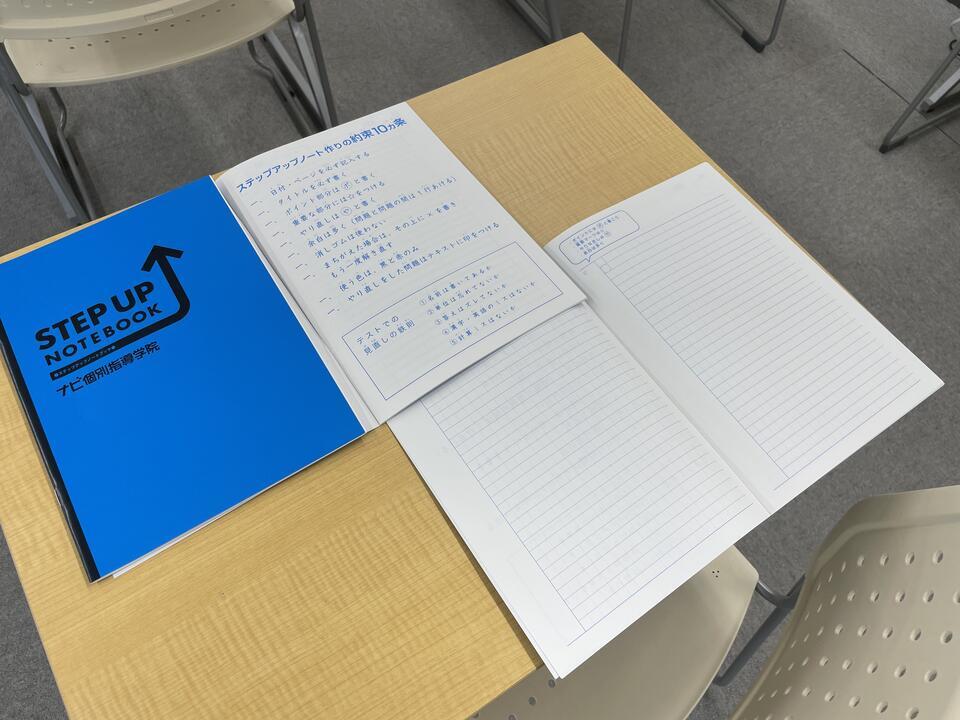 STEP UP
NOTEBOOK
ナビ個別指導学院
ステップアップノート作りの約束10カ条
一、日付・ページを必ず記入する
一、タイトルを必ず書く
一、ポイント部分はポと書く
一、重要な部分には☆をつける
一、やり直しはやと書く
一、余白は多く(問題と問題の間は1行あける)
一、消しゴムは使わない
一、まちがえた場合は、その上に×を書き
もう一度解き直す
一、使う色は、黒と赤のみ
一、やり直しをした問題はテキストに印をつける
テストでの
見直しの鉄則
①名前は書いてあるか
②単位は忘れてないか
③答えはズレてないか
④漢字・英語のミスはないか
⑤計算ミスはないか